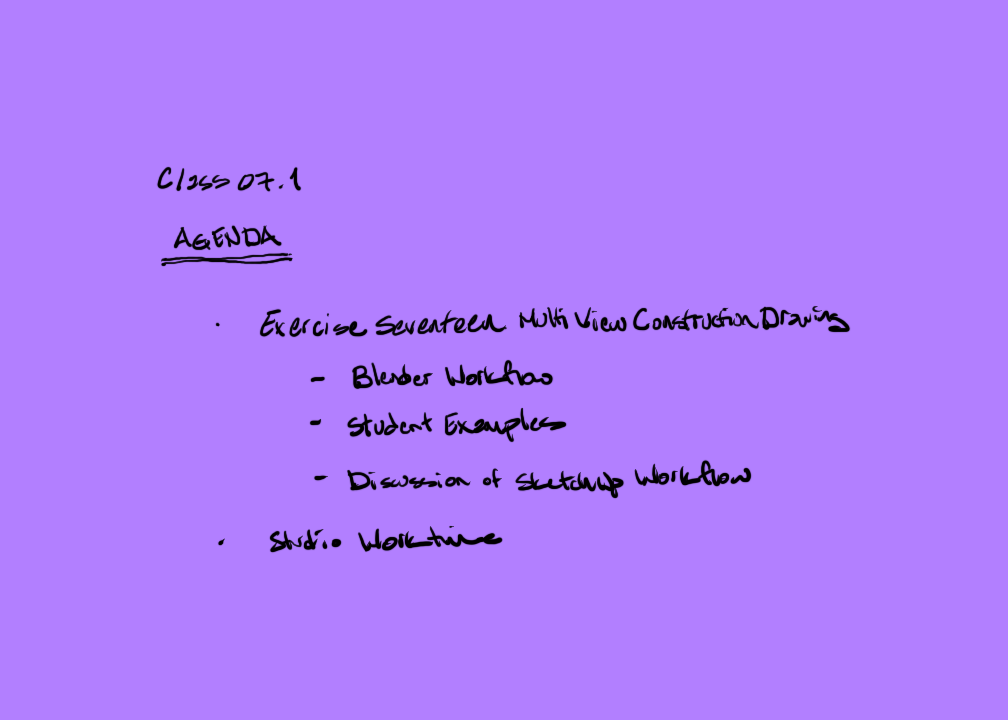 Class 07.1
AGENDA
· Exercise Seventeen Multi View Construction Drawing
- Blender Workflow
- Student Examples
- Discussion of SketchUp Workflow
· Studio Worktime